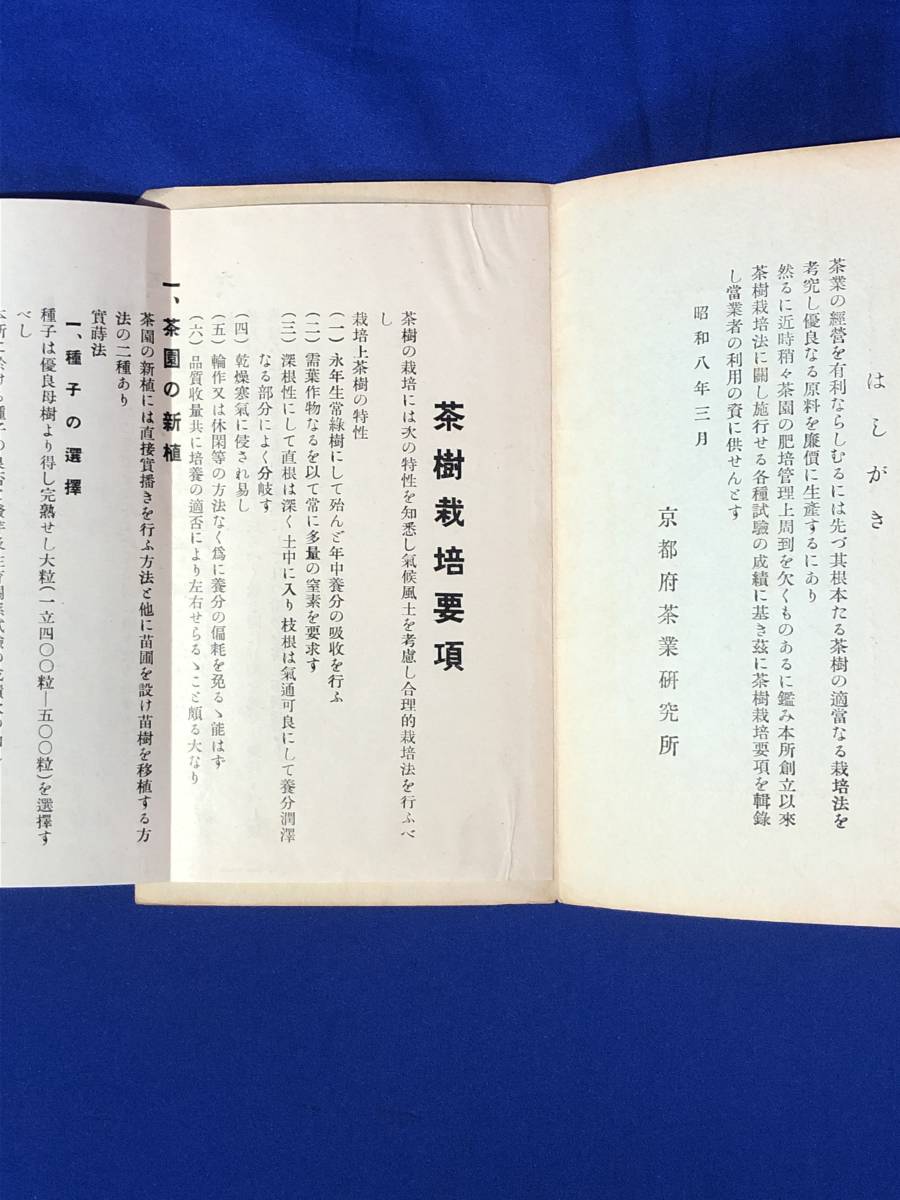 はしがき
茶業の經營を有利ならしむるには先づ其根本たる茶樹の適當なる栽培法を
考究し優良なる原料を廉價に生產するにあり
然るに近時稍々茶園の肥培管理上周到を欠くものあるに鑑み本所創立以來
茶樹栽培法に關し施行せる各種試驗の成績に基き茲に茶樹栽培要項を輯錄
し當業者の利用の資に供せんとす
昭和八年三月
京都府茶業硏究所
茶樹栽培要項
茶樹の栽培には次の特性を知悉し氣候風土を考慮し合理的栽培法を行ふべ
し
栽培上茶樹の特性
(一) 永年生常綠樹にして殆んど年中養分の吸收を行ふ
(二) 需葉作物なるを以て常に多量の窒素を要求す
(三) 深根性にして直根は深く土中に入り枝根は氣通可良にして養分潤澤
なる部分によく分岐す
(四) 乾燥寒氣に侵され易し
(五) 輪作又は休閑等の方法なく爲に養分の偏耗を免るゝ能はず
(六) 品質收量共に培養の適否により左右せらるゝこと頗る大なり
一、茶園の新植
茶園の新植には直接實播きを行ふ方法と他に苗圃を設け苗樹を移植する方
法の二種あり
實蒔法
一、種子の選擇
種子は優良母樹より得し完熟せし大粒(一立四〇〇粒―五〇〇粒)を選擇す
べし